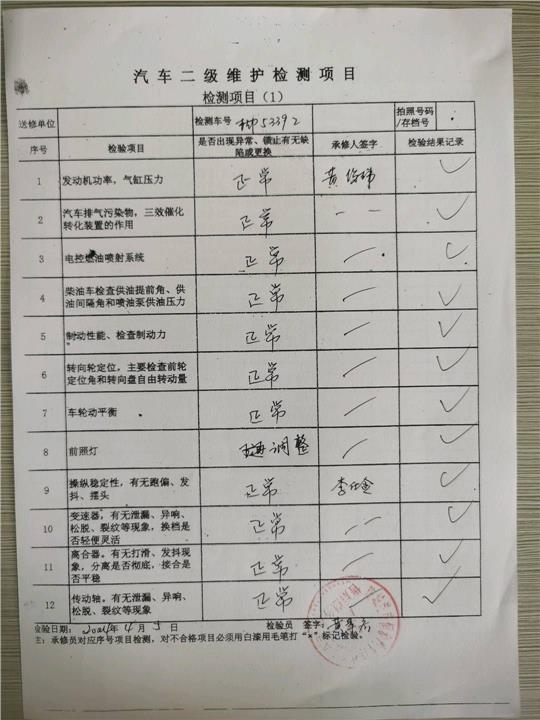 汽车二级维护检测项目
检测项目（1）
送修单位 检测车号 5339 2 拍照号码/存档号
序号 检验项目 是否出现异常、锁止有无缺陷或更换 承修人签字 检验结果记录
1 发动机功率，气缸压力 正常 黄 ✓
2 汽车排气污染物，三效催化转化装置的作用 正常 ✓
3 电控燃油喷射系统 正常 ✓
4 柴油车检查供油提前角、供油间隔角和喷油泵供油压力 正常 ✓
5 制动性能、检查制动力 正常 ✓
6 转向轮定位，主要检查前轮定位角和转向盘自由转动量 正常 ✓
7 车轮动平衡 正常 ✓
8 前照灯 调整 ✓
9 操纵稳定性，有无跑偏、发抖、摆头 正常 李 ✓
10 变速器，有无泄漏、异响、松脱、裂纹等现象，换档是否轻便灵活 正常 ✓
11 离合器。有无打滑、发抖现象，分离是否彻底，接合是否平稳 正常 ✓
12 传动轴。有无泄漏、异响、松脱、裂纹等现象 正常 ✓
检验日期： 年 4 月 3 日 检验员 签字：黄
注：承修员对应序号项目检测，对不合格项目必须用白漆用毛笔打“×”标记检验。